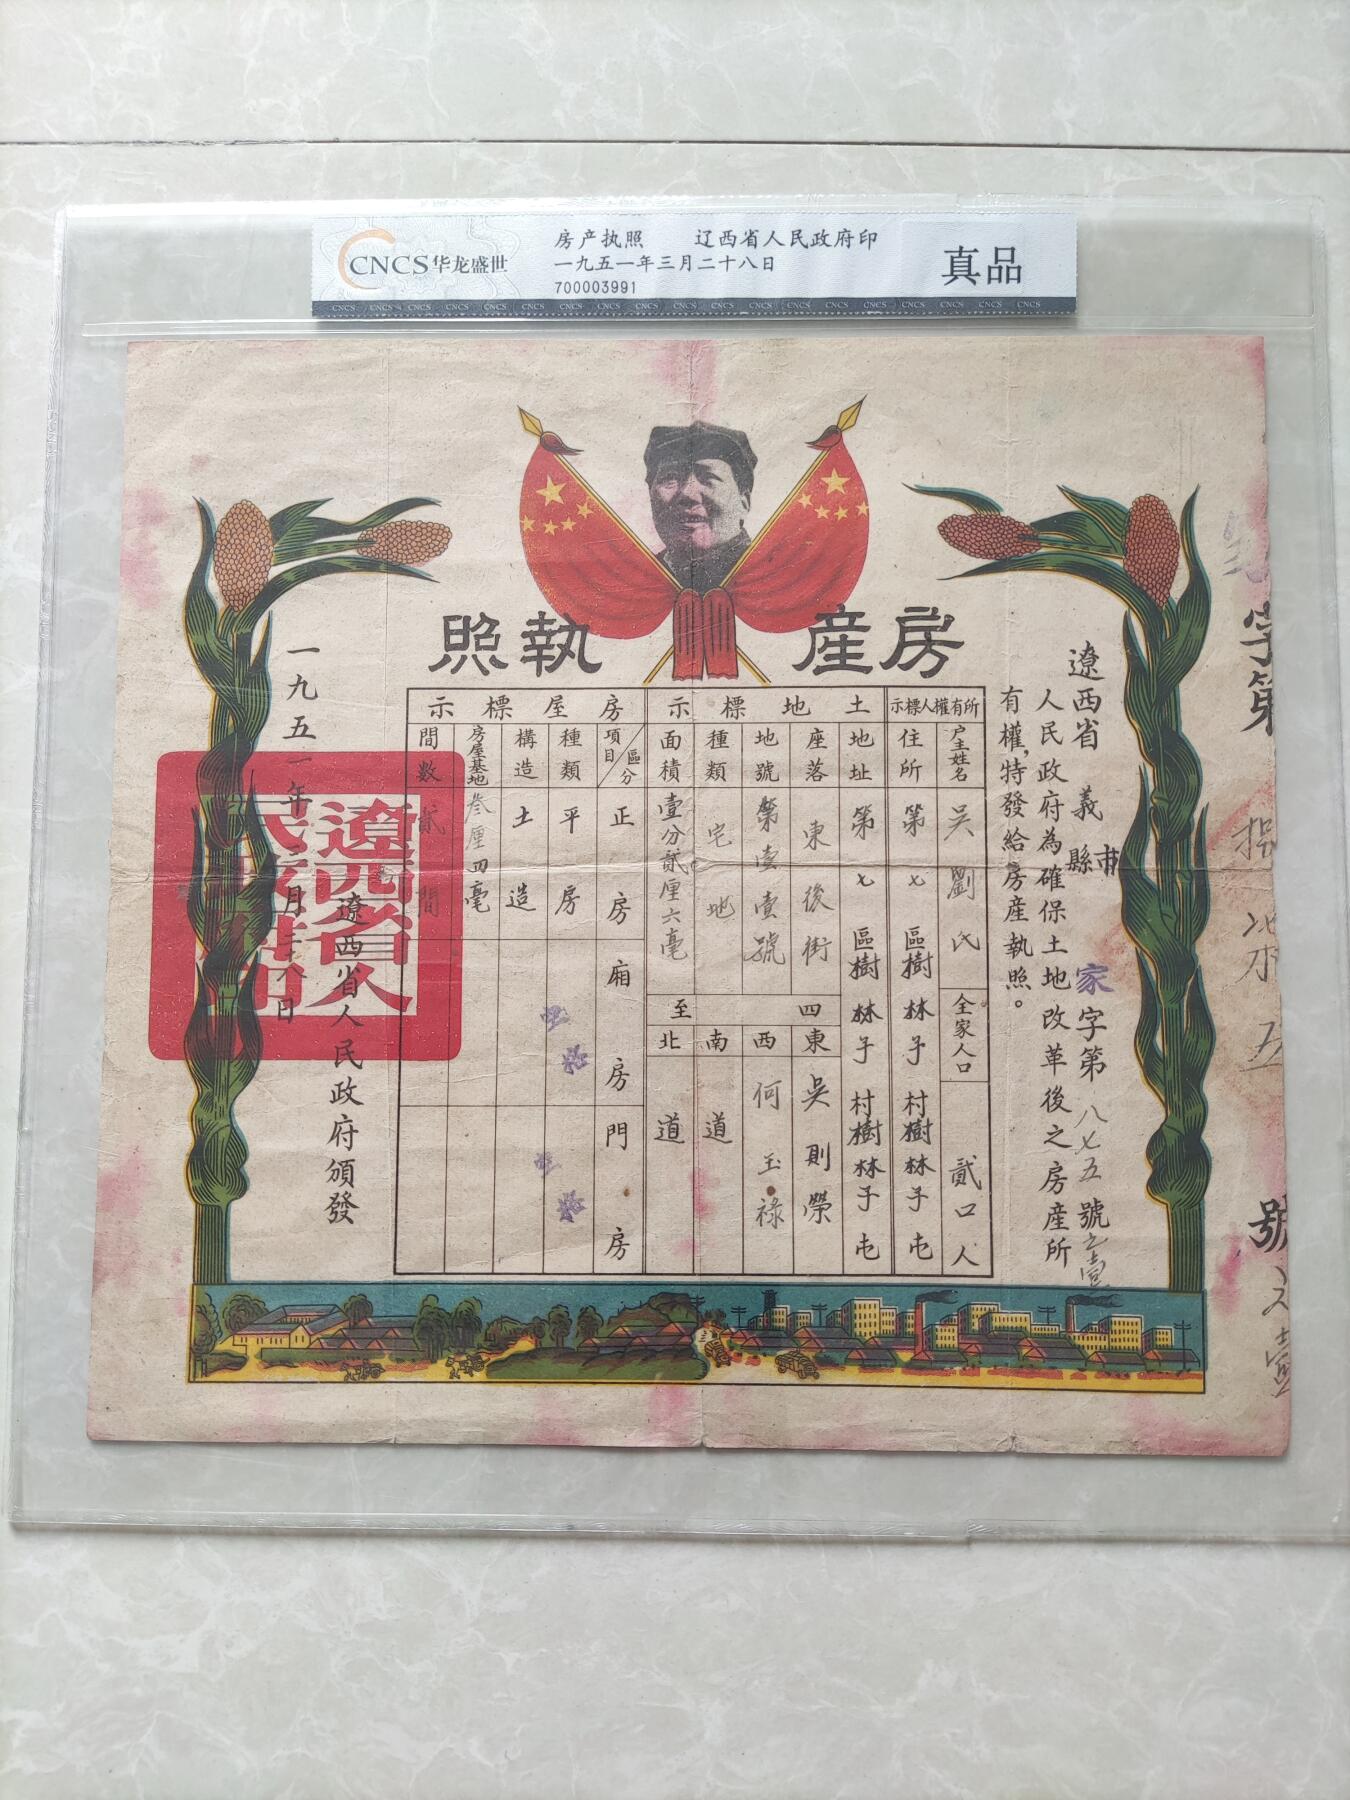 CNCS华龙盛世
房产执照 辽西省人民政府印
一九五一年三月二十八日
700003991
真品
房產執照
遼西省 義縣市 家字第八七五號之壹
人民政府為確保土地改革後之房產所
有權,特發給房產執照。
所有權人標示
戶主姓名 吳劉氏
全家人口 貳口人
住所 第七區樹林子村樹林子屯
土地標示
地址 第七區樹林子村樹林子屯
座落 東後街
地號 第壹壹號
種類 宅地
面積 壹分貳厘六毫
四至
東 吳則榮
西 何玉祿
南 道
北 道
房屋標示
項目 區分 正房 廂房 門房
種類 平房
構造 土造
房屋基地 叁厘四毫
間數 貳間
遼西省人民政府頒發
一九五一年三月二十八日
遼西省人民政府印
字第
號之壹